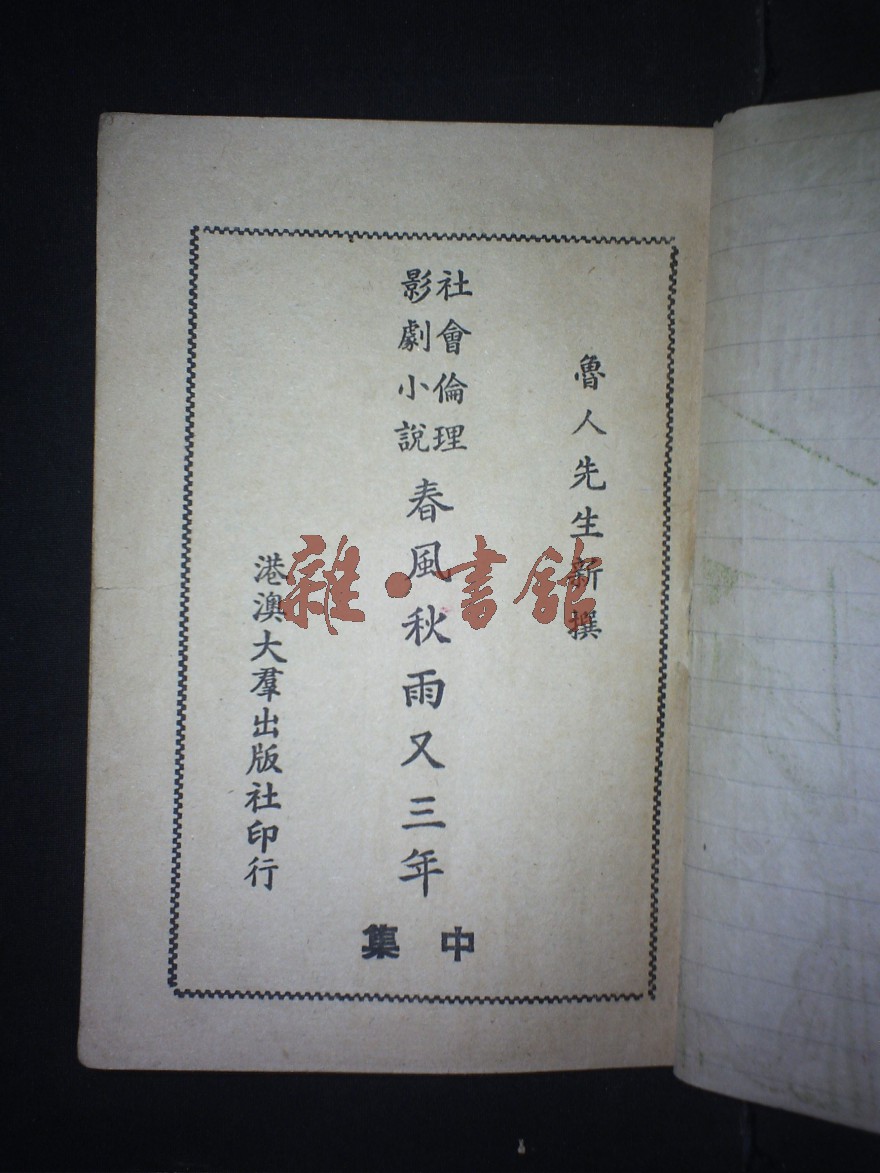 魯人先生新撰
社會倫理
影劇小說
春風秋雨又三年
中集
港澳大羣出版社印行
雜·書館